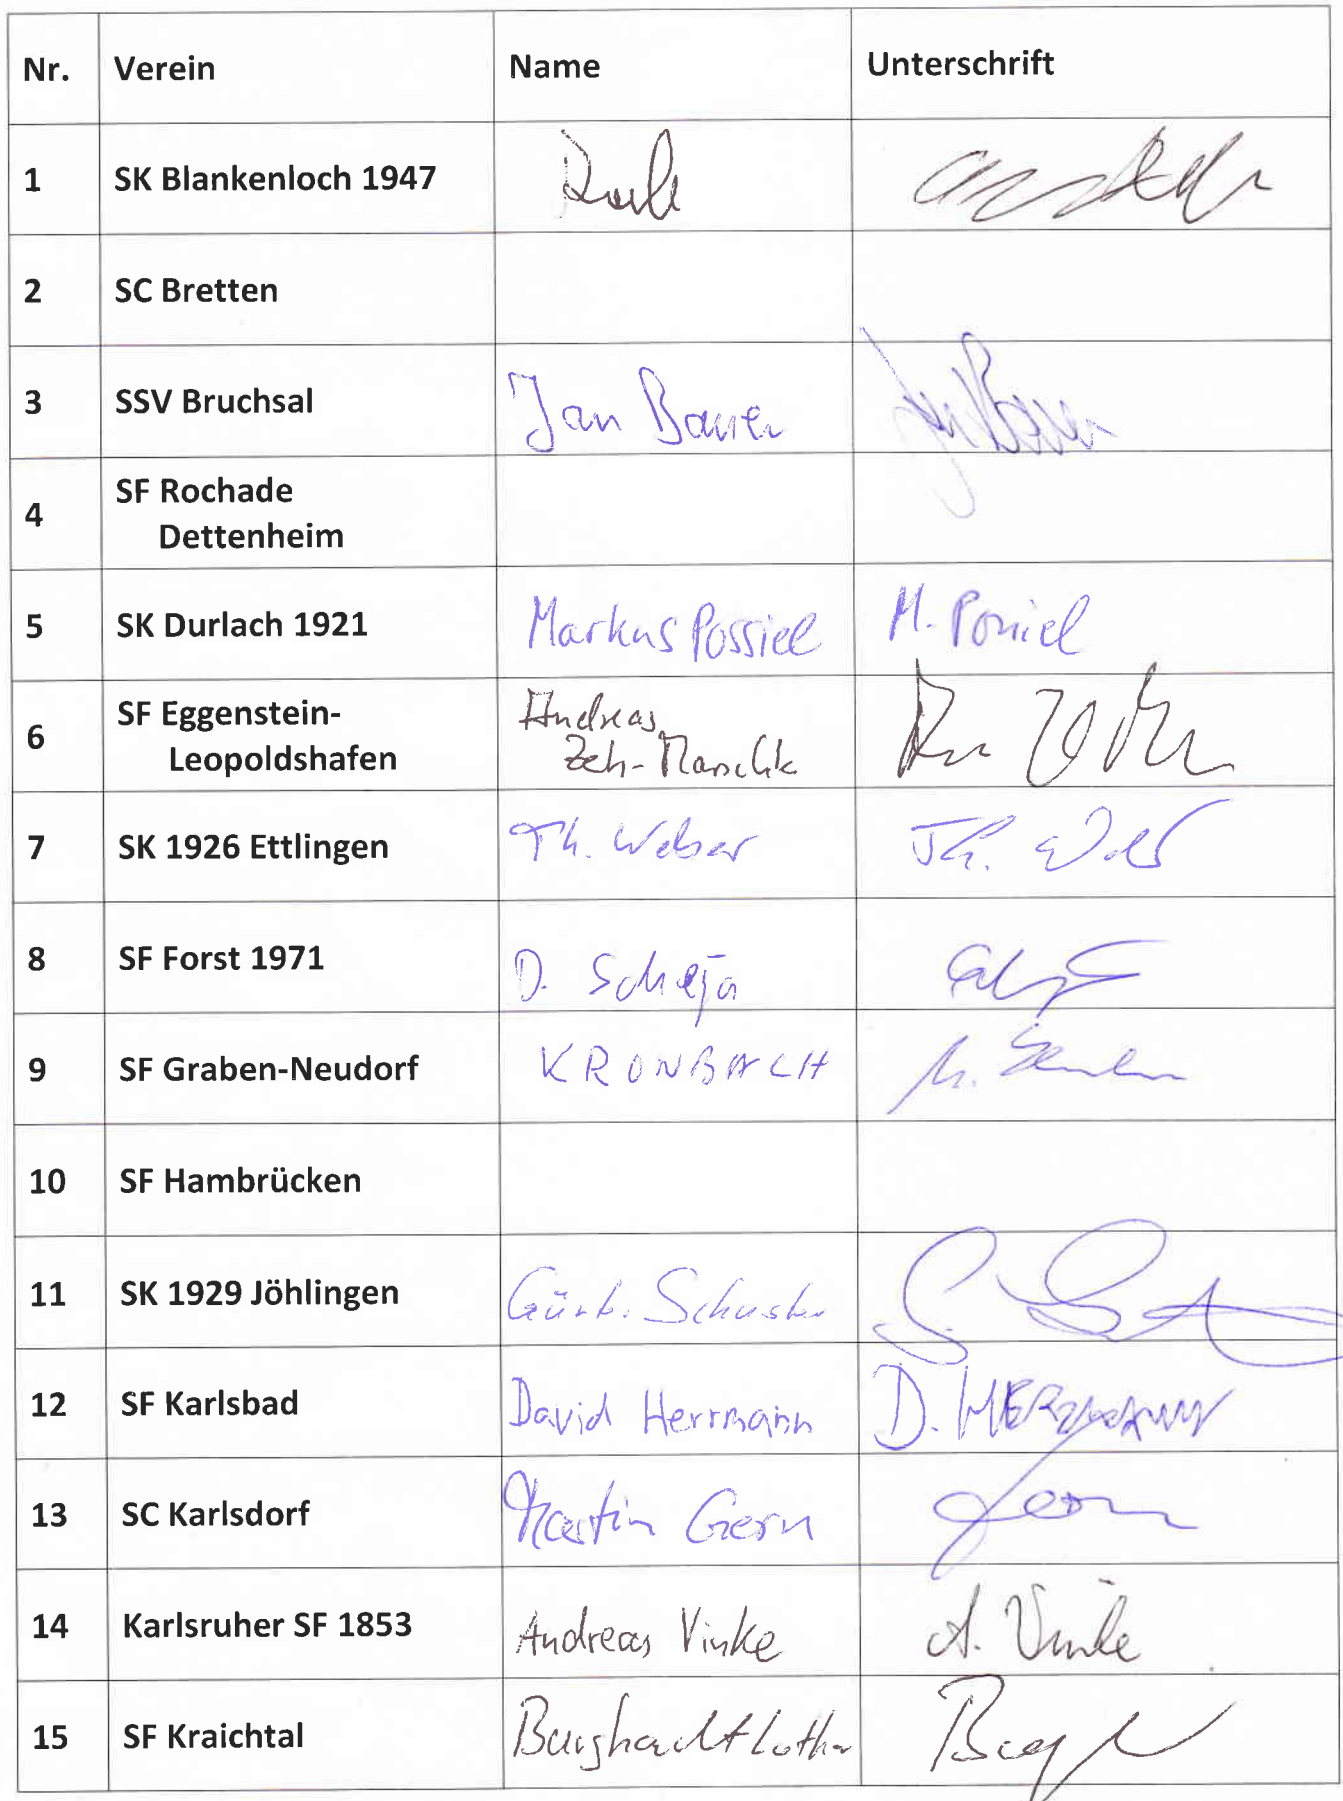 Nr. Verein Name Unterschrift
1 SK Blankenloch 1947
2 SC Bretten
3 SSV Bruchsal Jan Bauer
4 SF Rochade
Dettenheim
5 SK Durlach 1921 Markus Possiel M. Possiel
6 SF Eggenstein- Andreas
Leopoldshafen Zeh-Marschk
7 SK 1926 Ettlingen Th. Weber Th. Weber
8 SF Forst 1971 D. Scheja
9 SF Graben-Neudorf KRONBACH
10 SF Hambrücken
11 SK 1929 Jöhlingen Günt. Schuster
12 SF Karlsbad David Herrmann D. HERRMANN
13 SC Karlsdorf Martin Gern Gern
14 Karlsruher SF 1853 Andreas Vinke A. Vinke
15 SF Kraichtal Burghardt Lothar